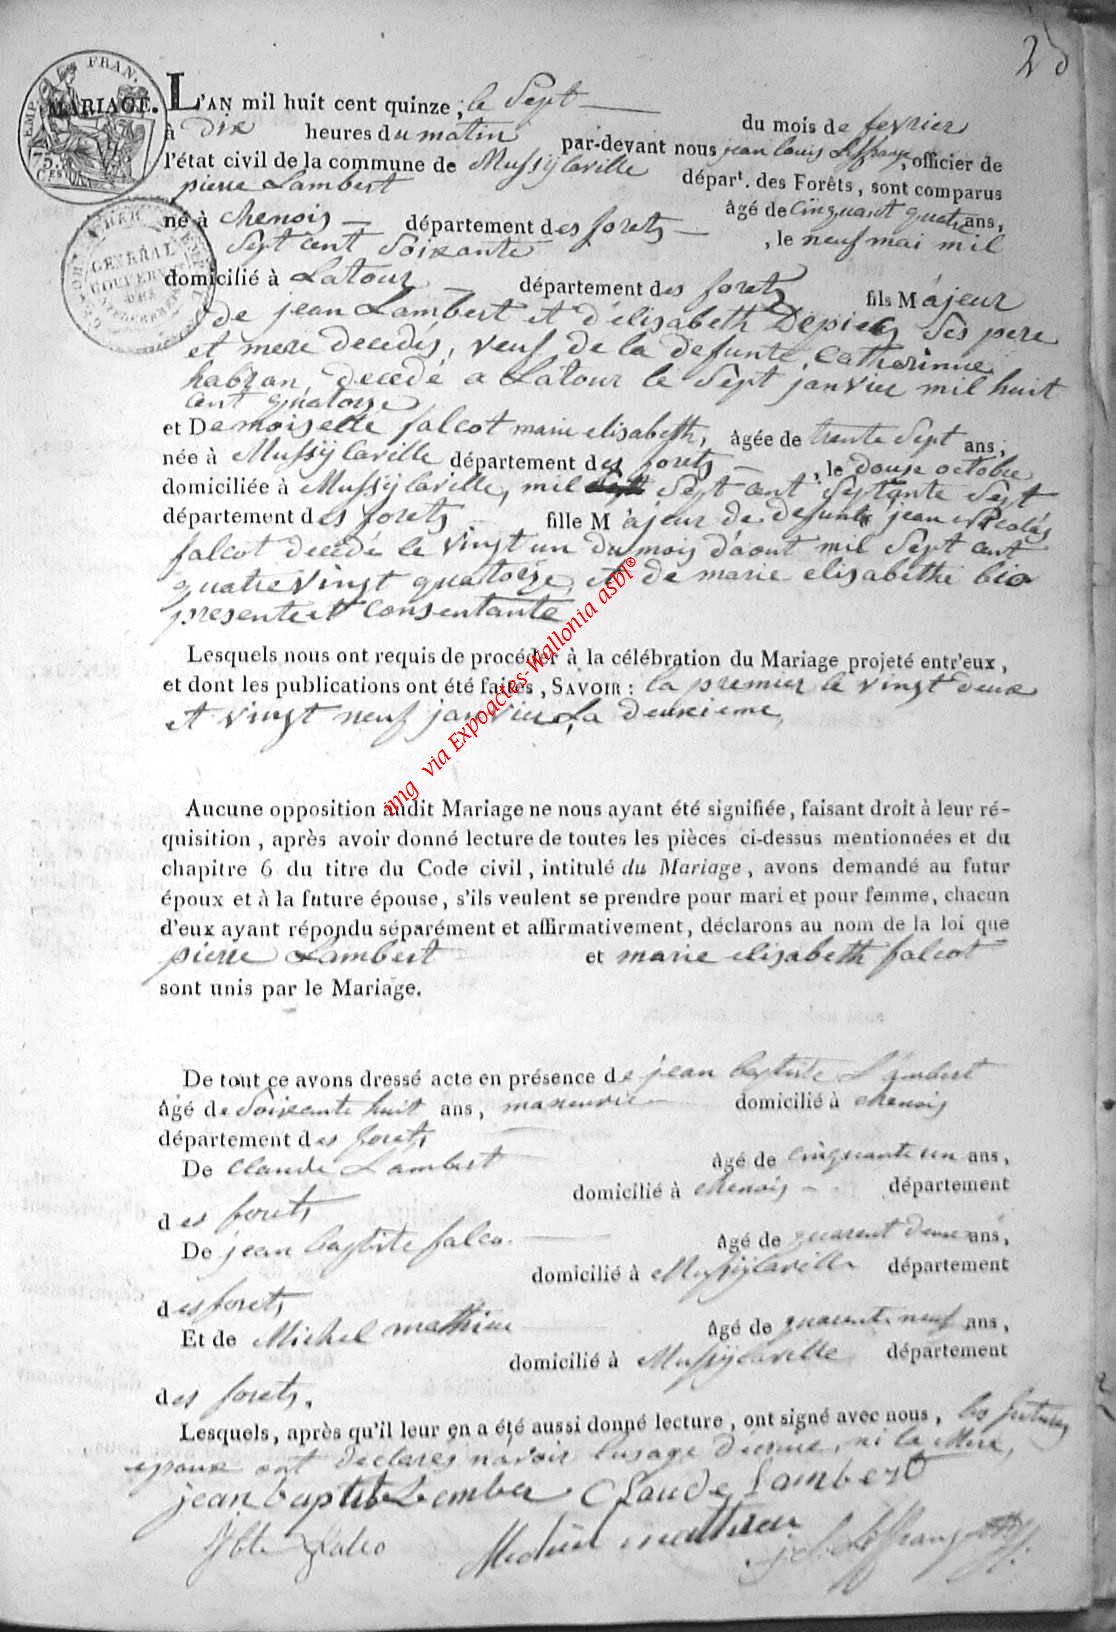 25
EMP. FRAN.
75.
CES
MARIAGE.
GENERAL
GOUVERN
DES
L'AN mil huit cent quinze, le Sept
du mois de fevrier
à Dix heures du matin par-devant nous jean louis, officier de
l'état civil de la commune de Mussÿ laville dépar<sup>t</sup>. des Forêts, sont comparus
pierre Lambert
âgé de cinquant quatre ans,
né à chenois département des forets, le neuf mai mil
Sept cent Soixante
domicilié à Latour département des forets fils Majeur
de jean Lambert et d'élisabeth Ses pere
et mere decedés, veuf de la defunte Catherinne
decedé a Latour le Sept janvier mil huit
cent quatorze
et Demoiselle falcot marie elisabeth, âgée de trente Sept ans,
née à Mussÿ laville département des forets, le douse octobre
domiciliée à Mussÿ laville, mil Sept cent Septante Sept
département des forets fille Majeur de defunt jean Nicolas
falcot decedé le vingt un du mois d'aout mil Sept cent
quatre vingt quatorze, et de marie elisabethe bio
presente et consentante
img via Expoactes-Wallonia asbl®
Lesquels nous ont requis de procéder à la célébration du Mariage projeté entr'eux,
et dont les publications ont été faites, SAVOIR : la premier le vingt deux
et vingt neuf janvier La deuxieme,
Aucune opposition audit Mariage ne nous ayant été signifiée, faisant droit à leur ré-
quisition, après avoir donné lecture de toutes les pièces ci-dessus mentionnées et du
chapitre 6 du titre du Code civil, intitulé du Mariage, avons demandé au futur
époux et à la future épouse, s'ils veulent se prendre pour mari et pour femme, chacun
d'eux ayant répondu séparément et affirmativement, déclarons au nom de la loi que
pierre Lambert et marie elisabeth falcot
sont unis par le Mariage.
De tout ce avons dressé acte en présence de jean baptiste Lambert
âgé de Soixante huit ans, domicilié à chenois
département des forets
De Claude Lambert âgé de cinquante un ans,
domicilié à chenois département
des forets
De jean baptiste falco âgé de quarent deux ans,
domicilié à Mussÿ laville département
des forets
Et de Michel mathieu âgé de quarente neuf ans,
domicilié à Mussÿ laville département
des forets.
Lesquels, après qu'il leur en a été aussi donné lecture, ont signé avec nous, les futures
epoux ont declarés n'avoir l'usage d'ecrire, ni la Mere,
jean baptiste Lember Claude Lambert
Jbte falco Michel mathieu